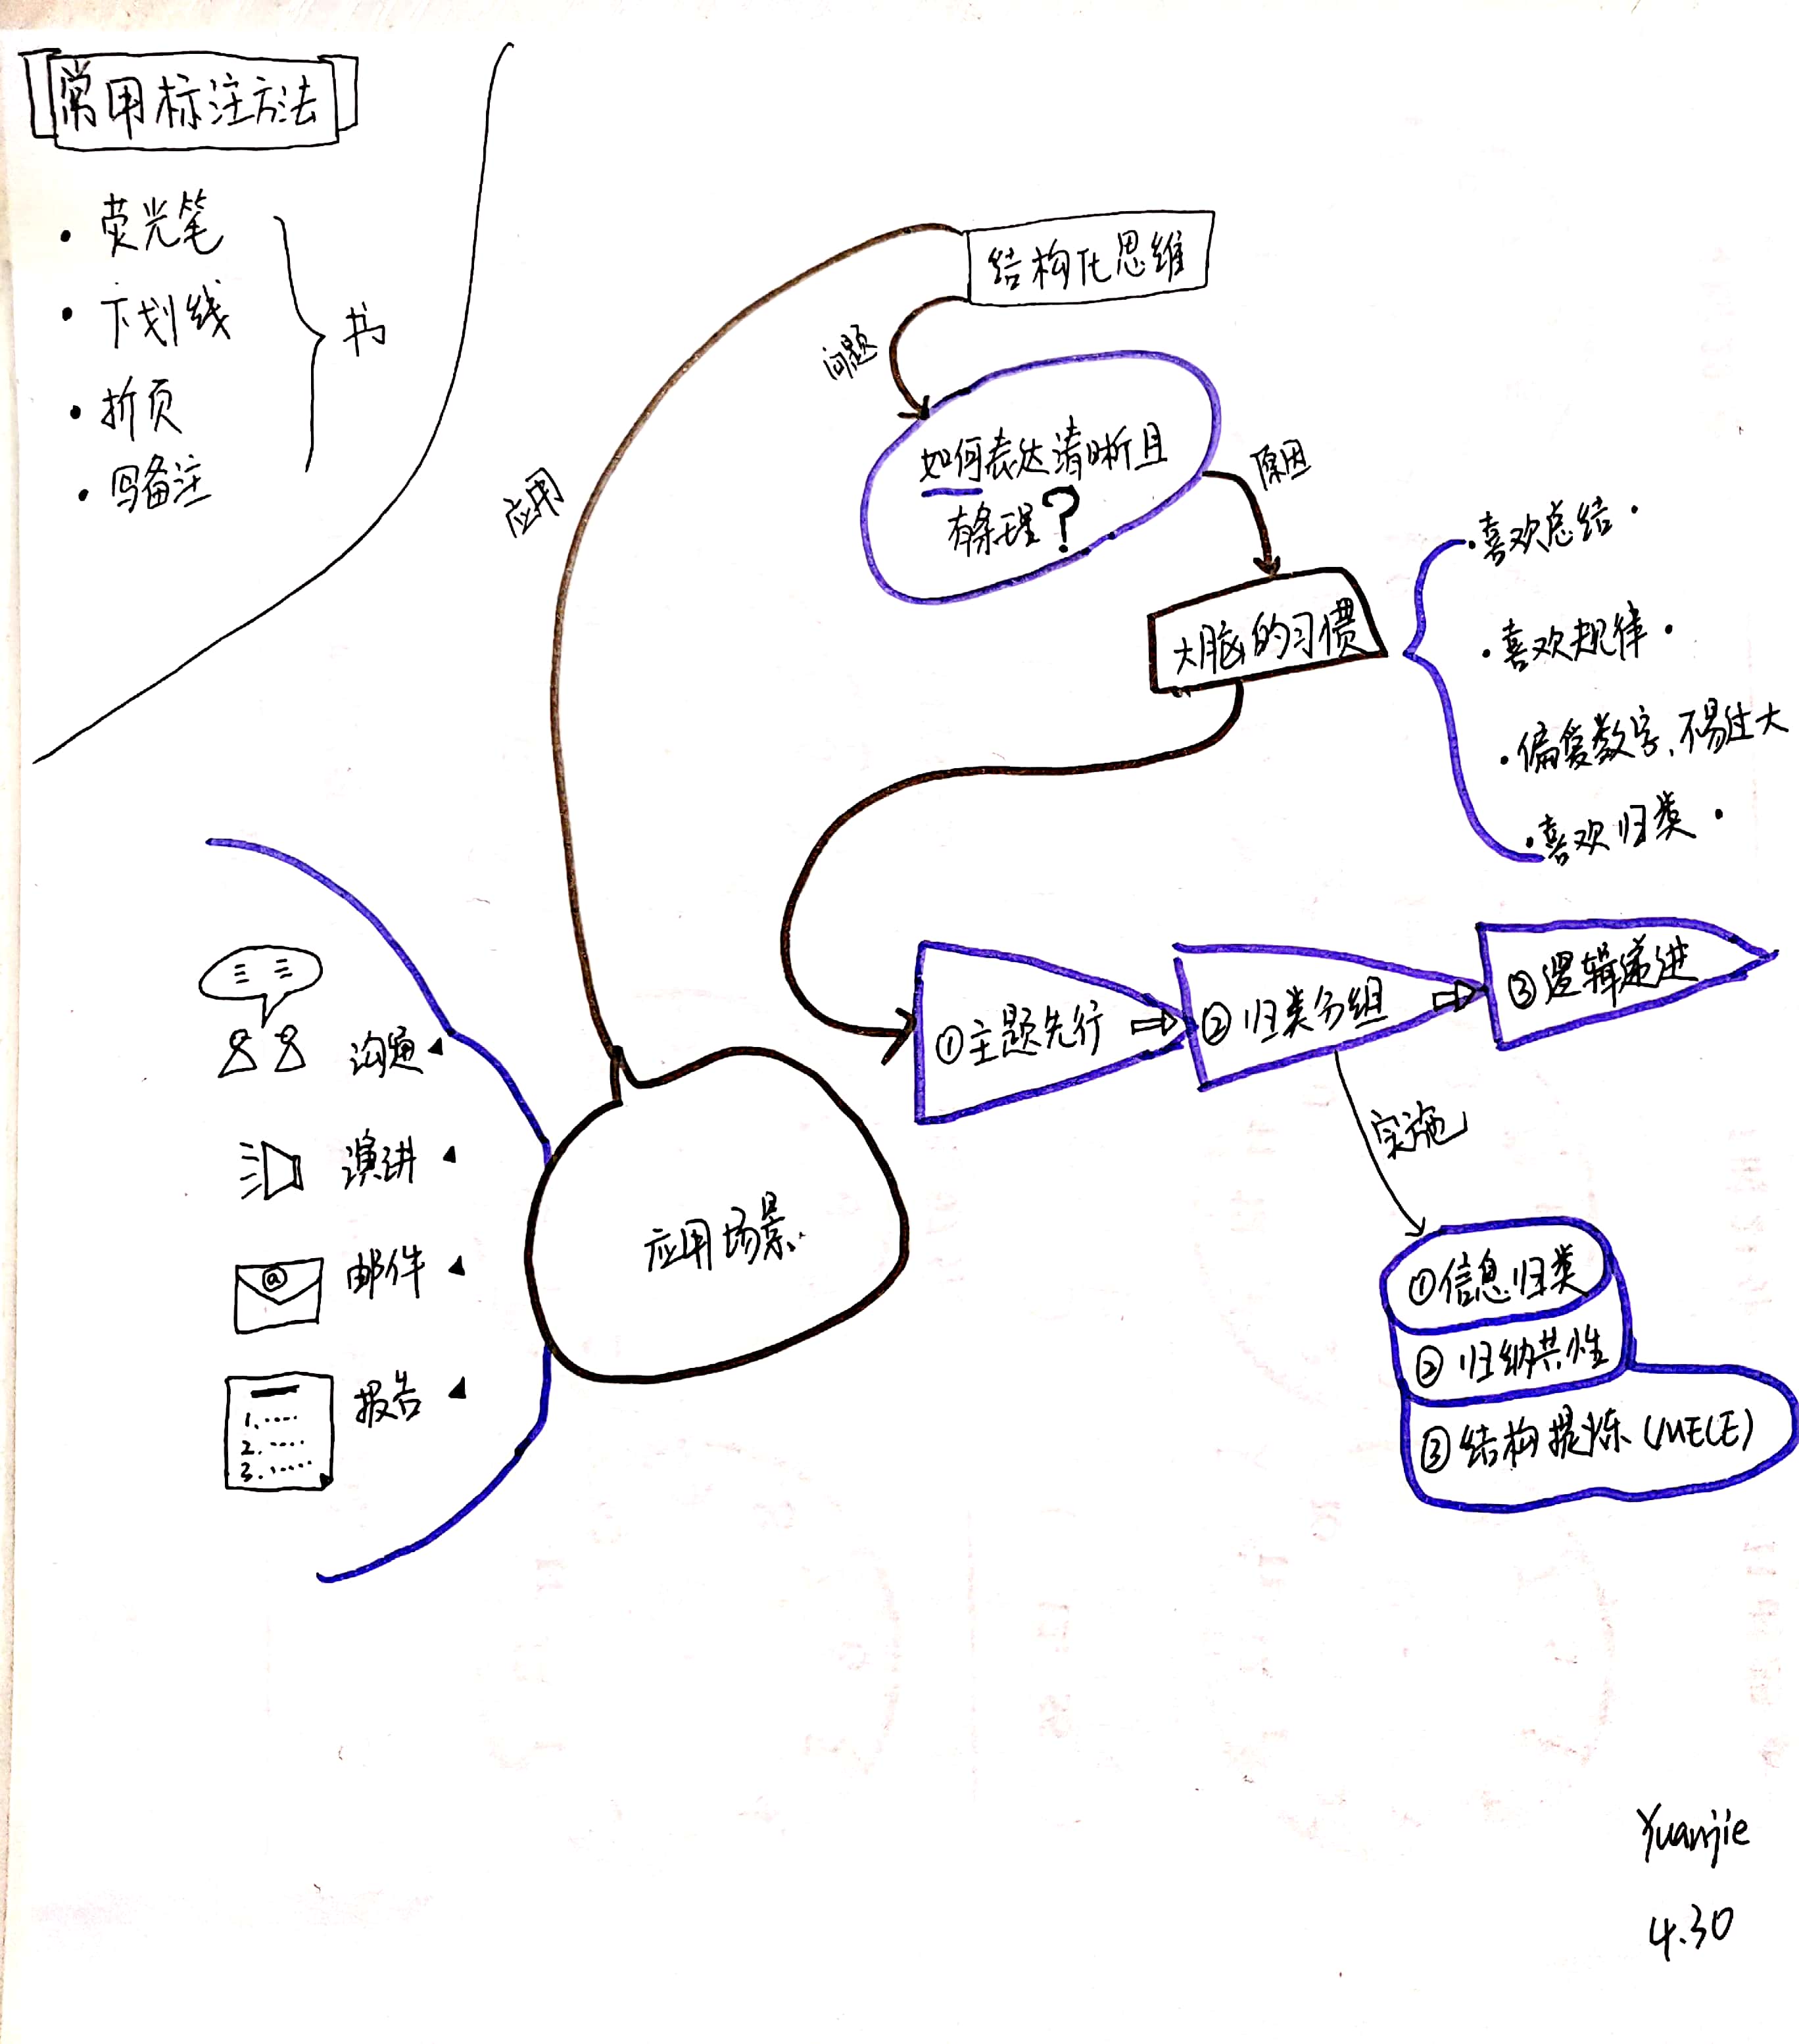 常用标注方法
• 荧光笔
• 下划线
• 折页
• 写备注
书
结构化思维
问题
如何表达清晰且
有条理？
原因
大脑的习惯
• 喜欢总结 •
• 喜欢规律 •
• 偏爱数字、不易过大
• 喜欢归类 •
①主题先行
②归类分组
③逻辑递进
实施
①信息归类
②归纳共性
③结构提炼(MECE)
应用
应用场景
沟通
演讲
@
邮件
报告
1.....
2.....
3.....
Yuanjie
4.30